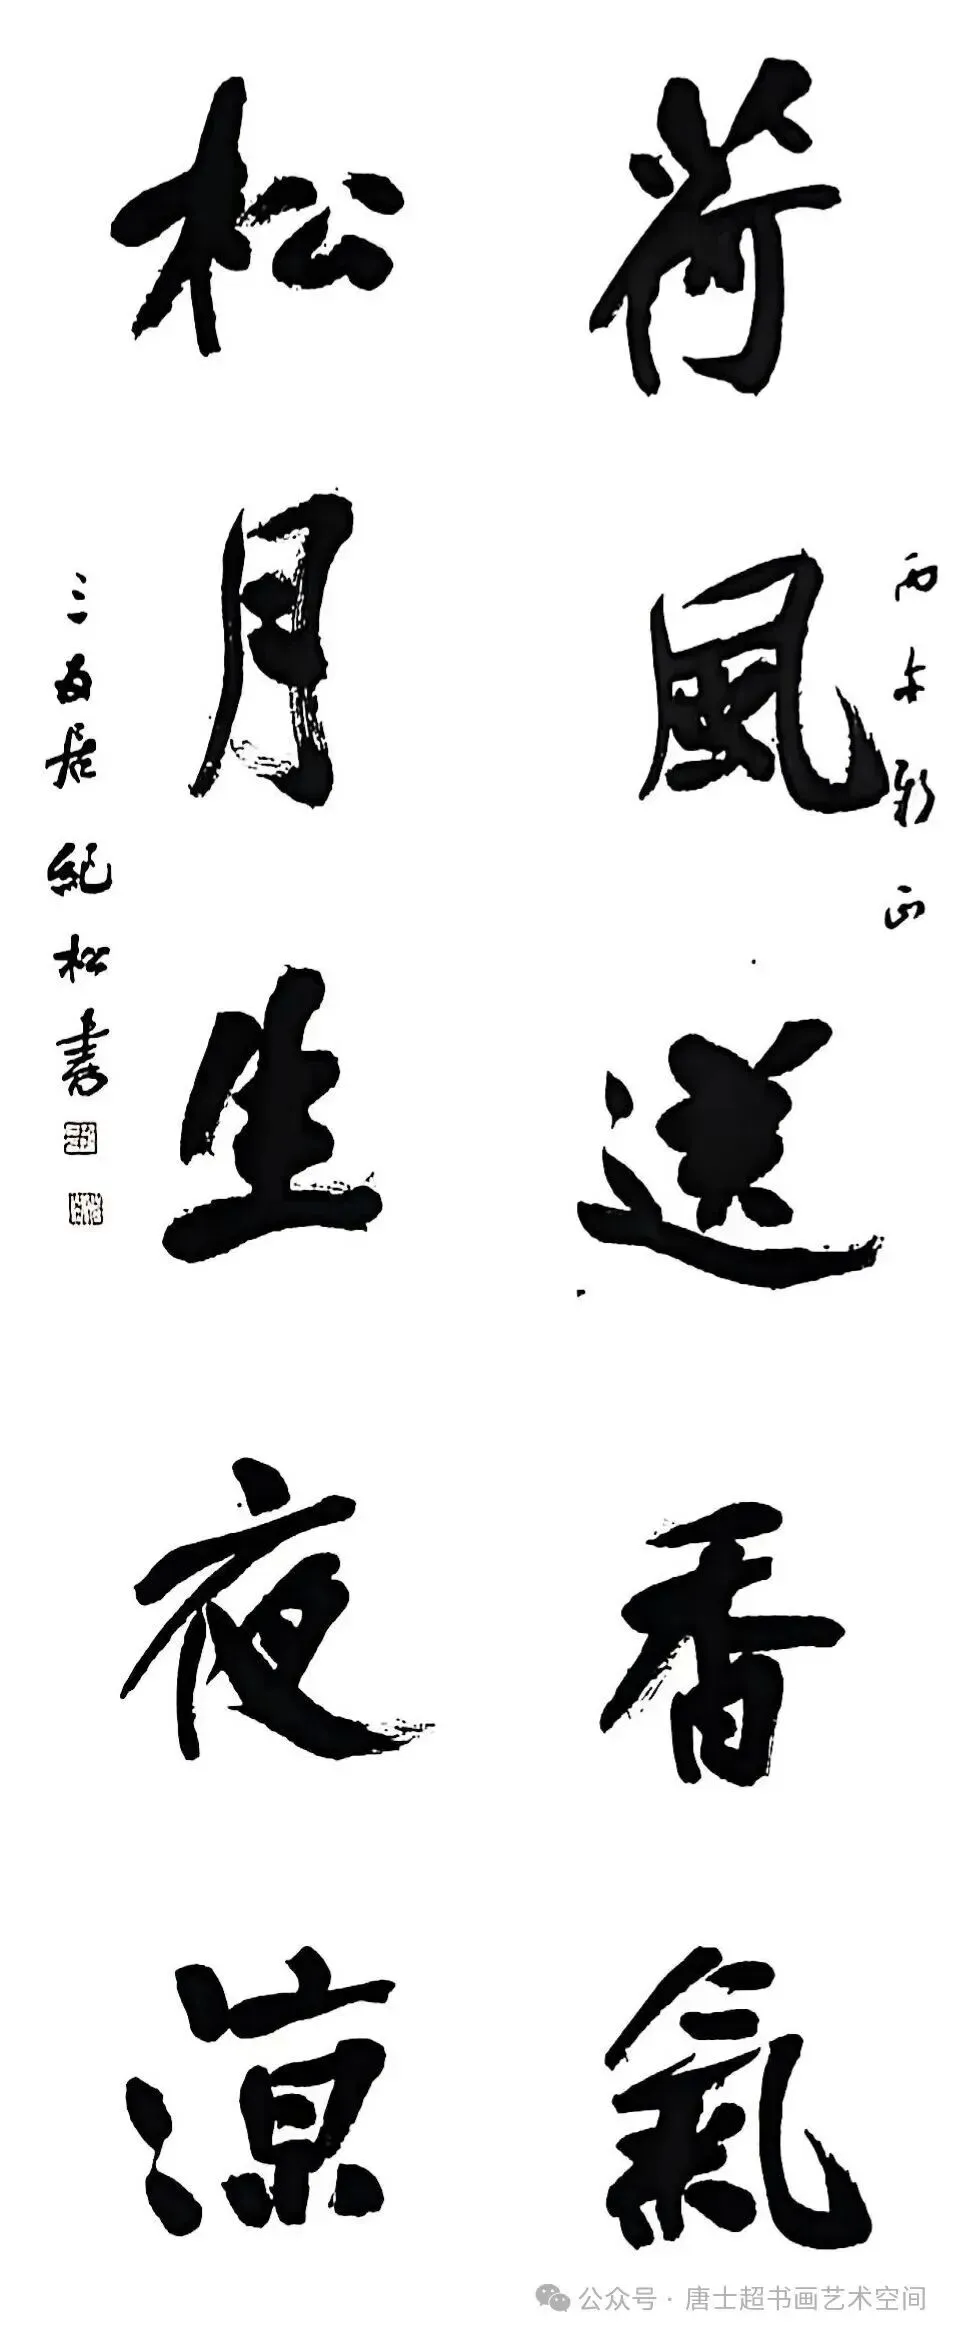 荷風送香氣
松月生夜涼
三
居紀松書
公众号·唐士超书画艺术空间